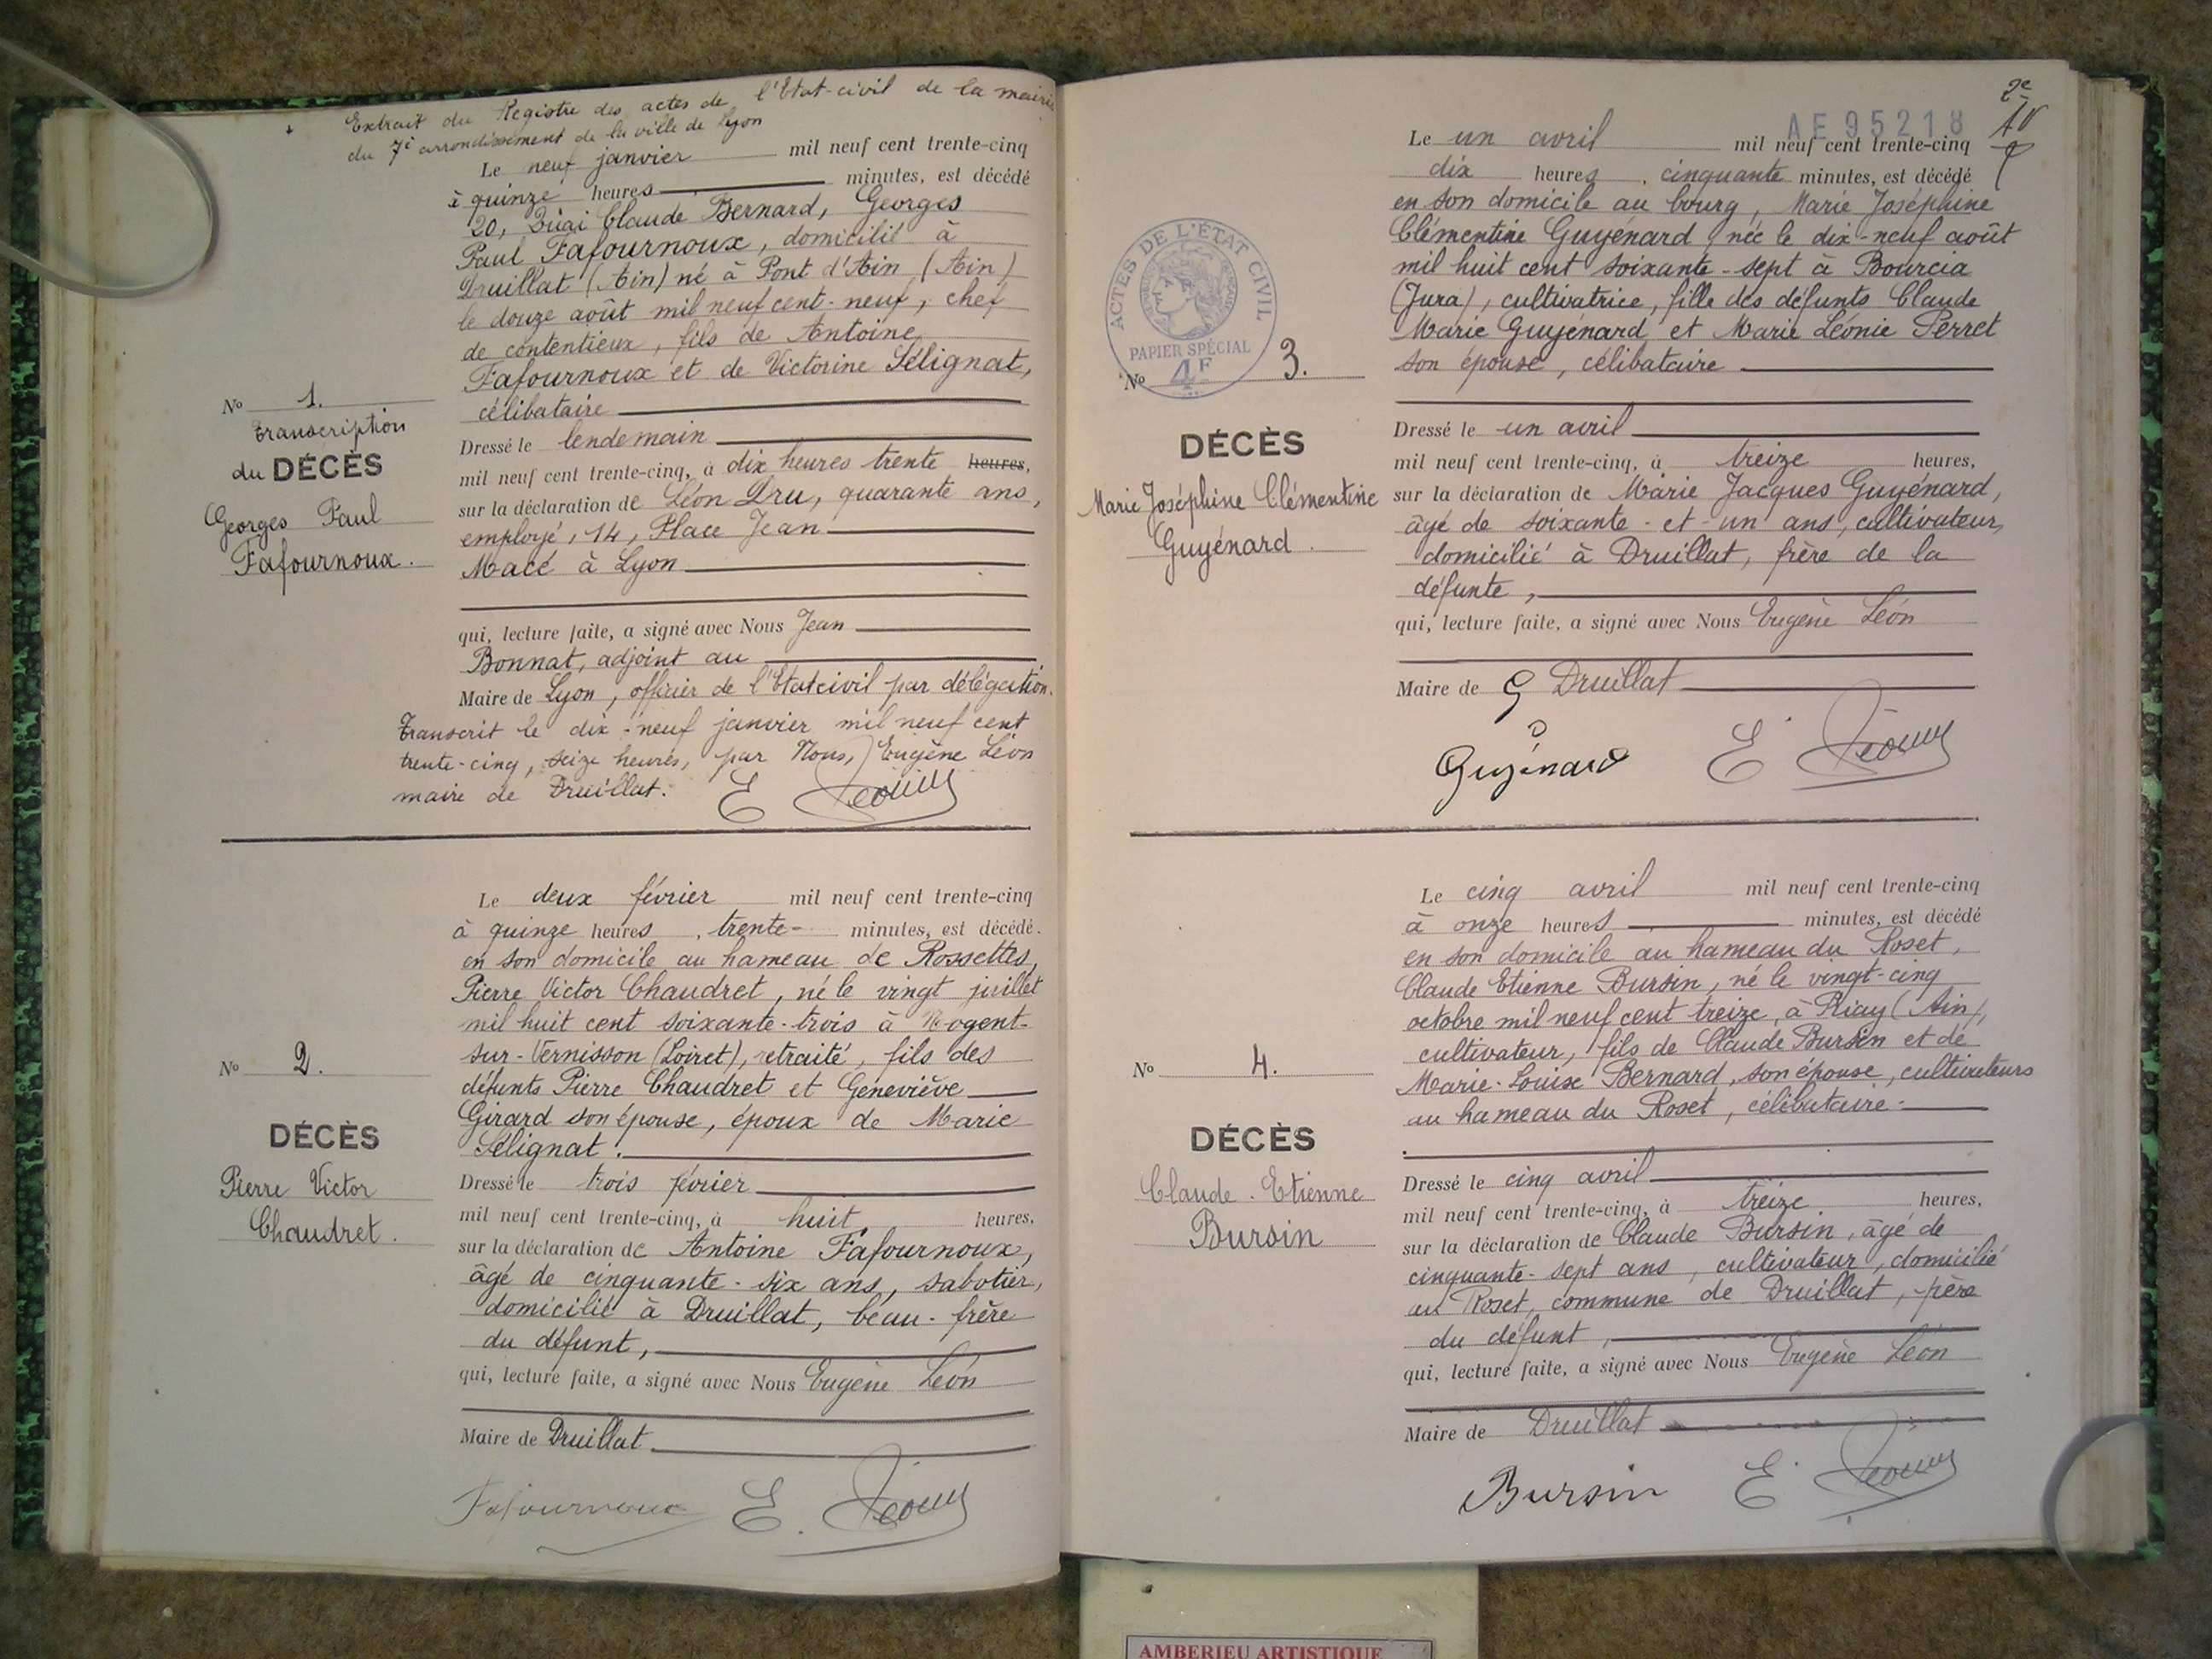 Extrait du Registre des actes de l'Etat-civil de la mairie
du 7e arrondissement de la ville de Lyon
Le neuf janvier mil neuf cent trente-cinq
à quinze heures minutes, est décédé
20, Quai Claude Bernard, Georges
Paul Fafournoux, domicilié à
Druillat (Ain) né à Pont d'Ain (Ain)
le douze août mil neuf cent-neuf, chef
de contentieux, fils de Antoine
Fafournoux et de Victorine Sélignat,
célibataire
No 1.
transcription
du DÉCÈS
Georges Paul
Fafournoux.
Dressé le lendemain
mil neuf cent trente-cinq, à dix heures trente heures,
sur la déclaration de Léon Dru, quarante ans,
employé, 14, Place Jean
Macé à Lyon
qui, lecture faite, a signé avec Nous Jean
Bonnat, adjoint au
Maire de Lyon, officier de l'Etat civil par délégation.
Transcrit le dix-neuf janvier mil neuf cent
trente-cinq, seize heures, par Nous, Eugène Léon
maire de Druillat.
E Léon
Le deux février mil neuf cent trente-cinq
à quinze heures, trente- minutes, est décédé.
en son domicile au hameau de Rossettes,
Pierre Victor Chaudret, né le vingt juillet
mil huit cent soixante-trois à Nogent-
sur-Vernisson (Loiret), retraité, fils des
défunts Pierre Chaudret et Geneviève
Girard son épouse, époux de Marie
Sélignat.
No 2.
DÉCÈS
Pierre Victor
Chaudret.
Dressé le trois février
mil neuf cent trente-cinq, à huit heures,
sur la déclaration de Antoine Fafournoux,
âgé de cinquante-six ans, sabotier,
domicilié à Druillat, beau-frère
du défunt,
qui, lecture faite, a signé avec Nous Eugène Léon
Maire de Druillat
Fafournoux E. Léon
2e
AE95218
Le un avril mil neuf cent trente-cinq
dix heures, cinquante minutes, est décédé
en son domicile au bourg, Marie Joséphine
Clémentine Guyénard, née le dix-neuf août
mil huit cent soixante-sept à Bourcia
(Jura), cultivatrice, fille des défunts Claude
Marie Guyénard et Marie Léonie Perret
son épouse, célibataire
ACTES DE L'ÉTAT CIVIL
PAPIER SPÉCIAL
4F
No 3.
DÉCÈS
Marie Joséphine Clémentine
Guyénard.
Dressé le un avril
mil neuf cent trente-cinq, à treize heures,
sur la déclaration de Marie Jacques Guyénard,
âgé de soixante-et-un ans, cultivateur,
domicilié à Druillat, frère de la
défunte,
qui, lecture faite, a signé avec Nous Eugène Léon
Maire de G Druillat
Guyénard E Léon
Le cinq avril mil neuf cent trente-cinq
à onze heures minutes, est décédé
en son domicile au hameau du Roset,
Claude Etienne Bursin, né le vingt-cinq
octobre mil neuf cent treize, à Priay (Ain),
cultivateur, fils de Claude Bursin et de
Marie-Louise Bernard, son épouse, cultivateurs
au hameau du Roset, célibataire.
No 4.
DÉCÈS
Claude-Etienne
Bursin
Dressé le cinq avril
mil neuf cent trente-cinq, à treize heures,
sur la déclaration de Claude Bursin, âgé de
cinquante-sept ans, cultivateur, domicilié
au Roset, commune de Druillat, père
du défunt,
qui, lecture faite, a signé avec Nous Eugène Léon
Maire de Druillat
Bursin E. Léon
AMBERIEU ARTISTIQUE